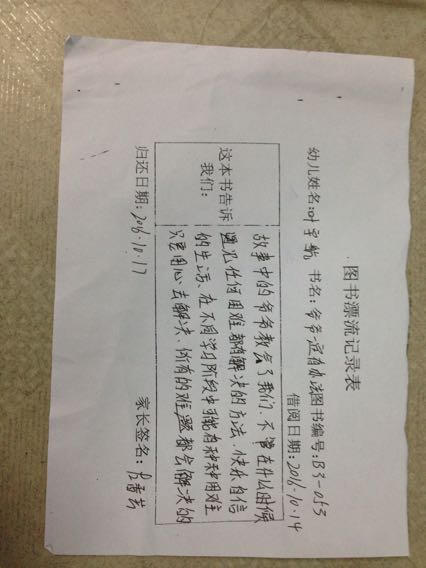 图书漂流记录表
借阅日期:2016.10.14
幼儿姓名:叶宇航 书名:爷爷一定有办法图书编号:B3-053
这本书告诉
我们:
故事中的爷爷教会了我们、不管在什么时候
遇见任何困难都有解决的方法、快乐自信
的生活、在不同学习阶段中可能有种种困难
只要用心去解决、所有的难题都会解决的
归还日期:2016.10.17 家长签名: